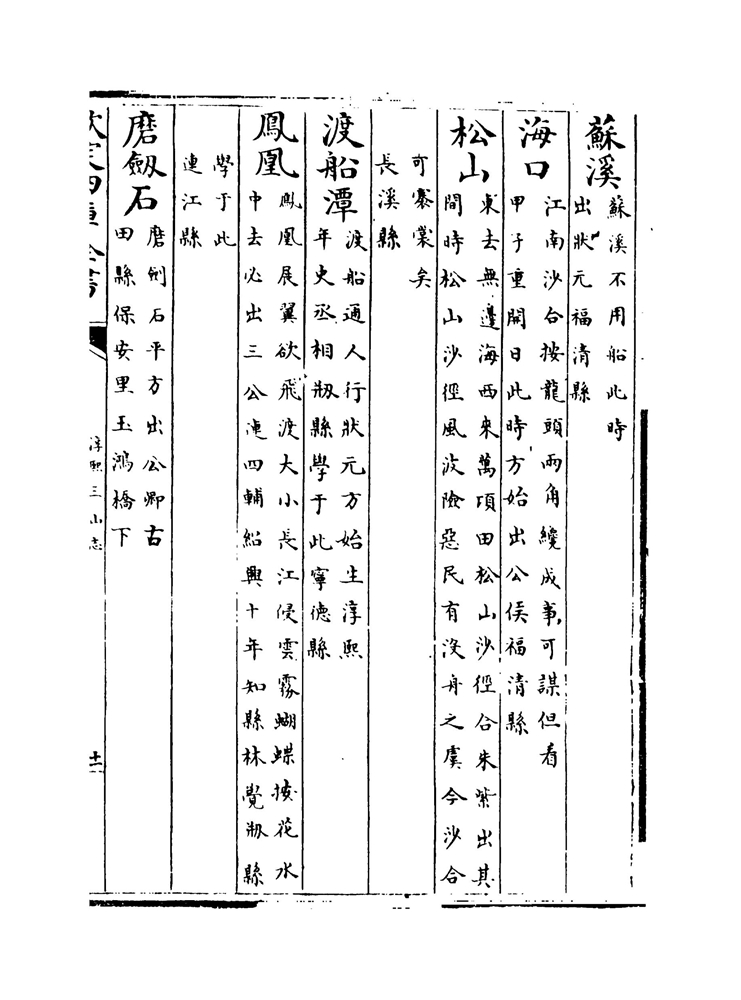 蘇溪蘇溪不用船此時
出狀元福清縣
海口江南沙合按龍頭兩角纔成事可謀但看
甲子重開日此時方始出公侯福清縣
松山東去無邊海西來萬項田松山沙徑合朱紫出其
間時松山沙徑風波險惡民有沒舟之虞今沙合
可褰裳矣
長溪縣
渡船潭渡船通人行狀元方始生淳熙
年史丞相剏縣學于此寧德縣
鳳凰鳳凰展翼欲飛渡大小長江侵雲霧蝴蝶按花水
中去必出三公連四輔紹興十年知縣林覺剏縣
學于此
連江縣
磨劒石磨劍石平方出公卿古
田縣保安里玉鴻橋下
欽定四庫全書
淳熙三山志
十一